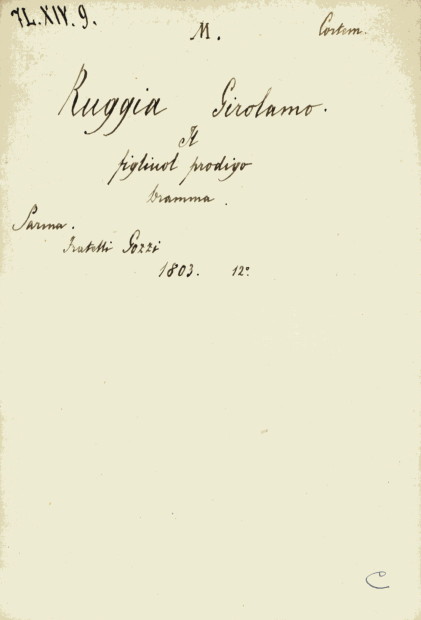 71.XIV.9.
M. Cortem.
Ruggia Girolamo.
Il
figliuol prodigo
dramma.
Parma.
Fratelli Gozzi
1803. 12°
C